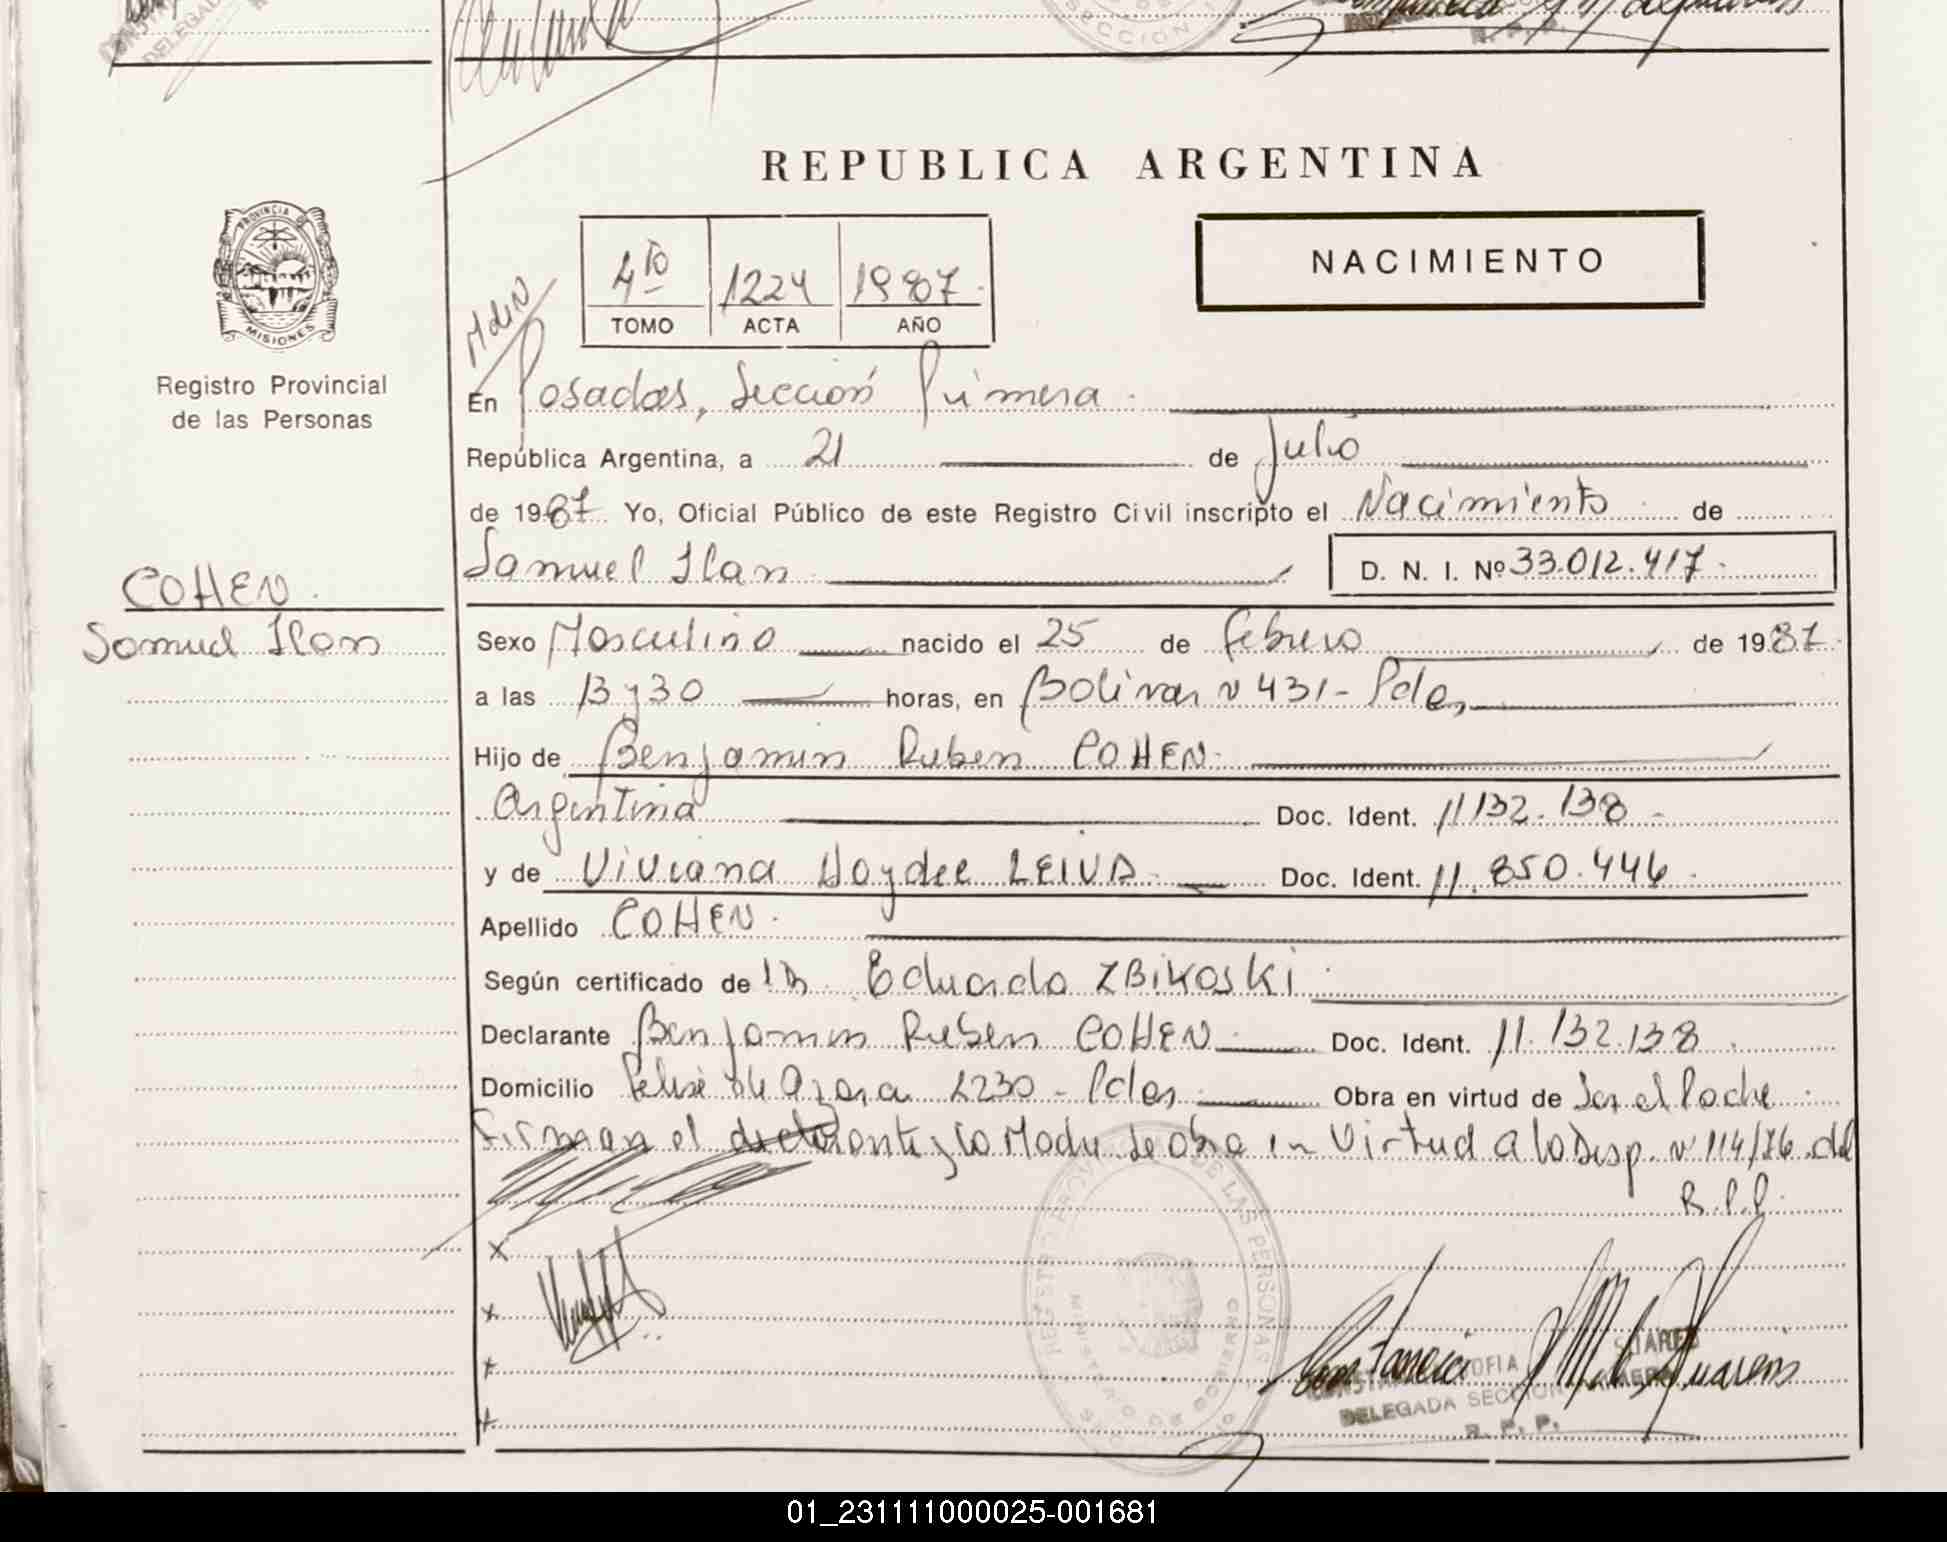 REPUBLICA ARGENTINA
NACIMIENTO
4to 1224 1987
TOMO ACTA AÑO
PROVINCIA DE MISIONES
Registro Provincial
de las Personas
En Posadas, Sección Primera
República Argentina, a 21 de Julio
de 1987 Yo, Oficial Público de este Registro Civil inscripto el Nacimiento de
Samuel Ilan D. N. I. Nº 33.012.417
COHEN
Samuel Ilan
Sexo Masculino nacido el 25 de Febrero de 1987
a las 13 y 30 horas, en Bolivar nº 431 - Pdas
Hijo de Benjamin Ruben COHEN
Argentina Doc. Ident. 11.132.138
y de Viviana Haydee LEIVA Doc. Ident. 11.850.446
Apellido COHEN
Según certificado de Eduardo ZBIKOSKI
Declarante Benjamin Ruben COHEN Doc. Ident. 11.132.138
Domicilio Felix de Azara 2230 - Pdas Obra en virtud de Ser el Padre
Firman el declarante y la Madre Se obra en Virtud a la Disp. nº 114/76 del
R.P.P.
REGISTRO PROVINCIAL DE LAS PERSONAS
MINISTERIO DE GOBIERNO
DELEGADA SECCION PRIMERA
R. P. P.
01_231111000025-001681